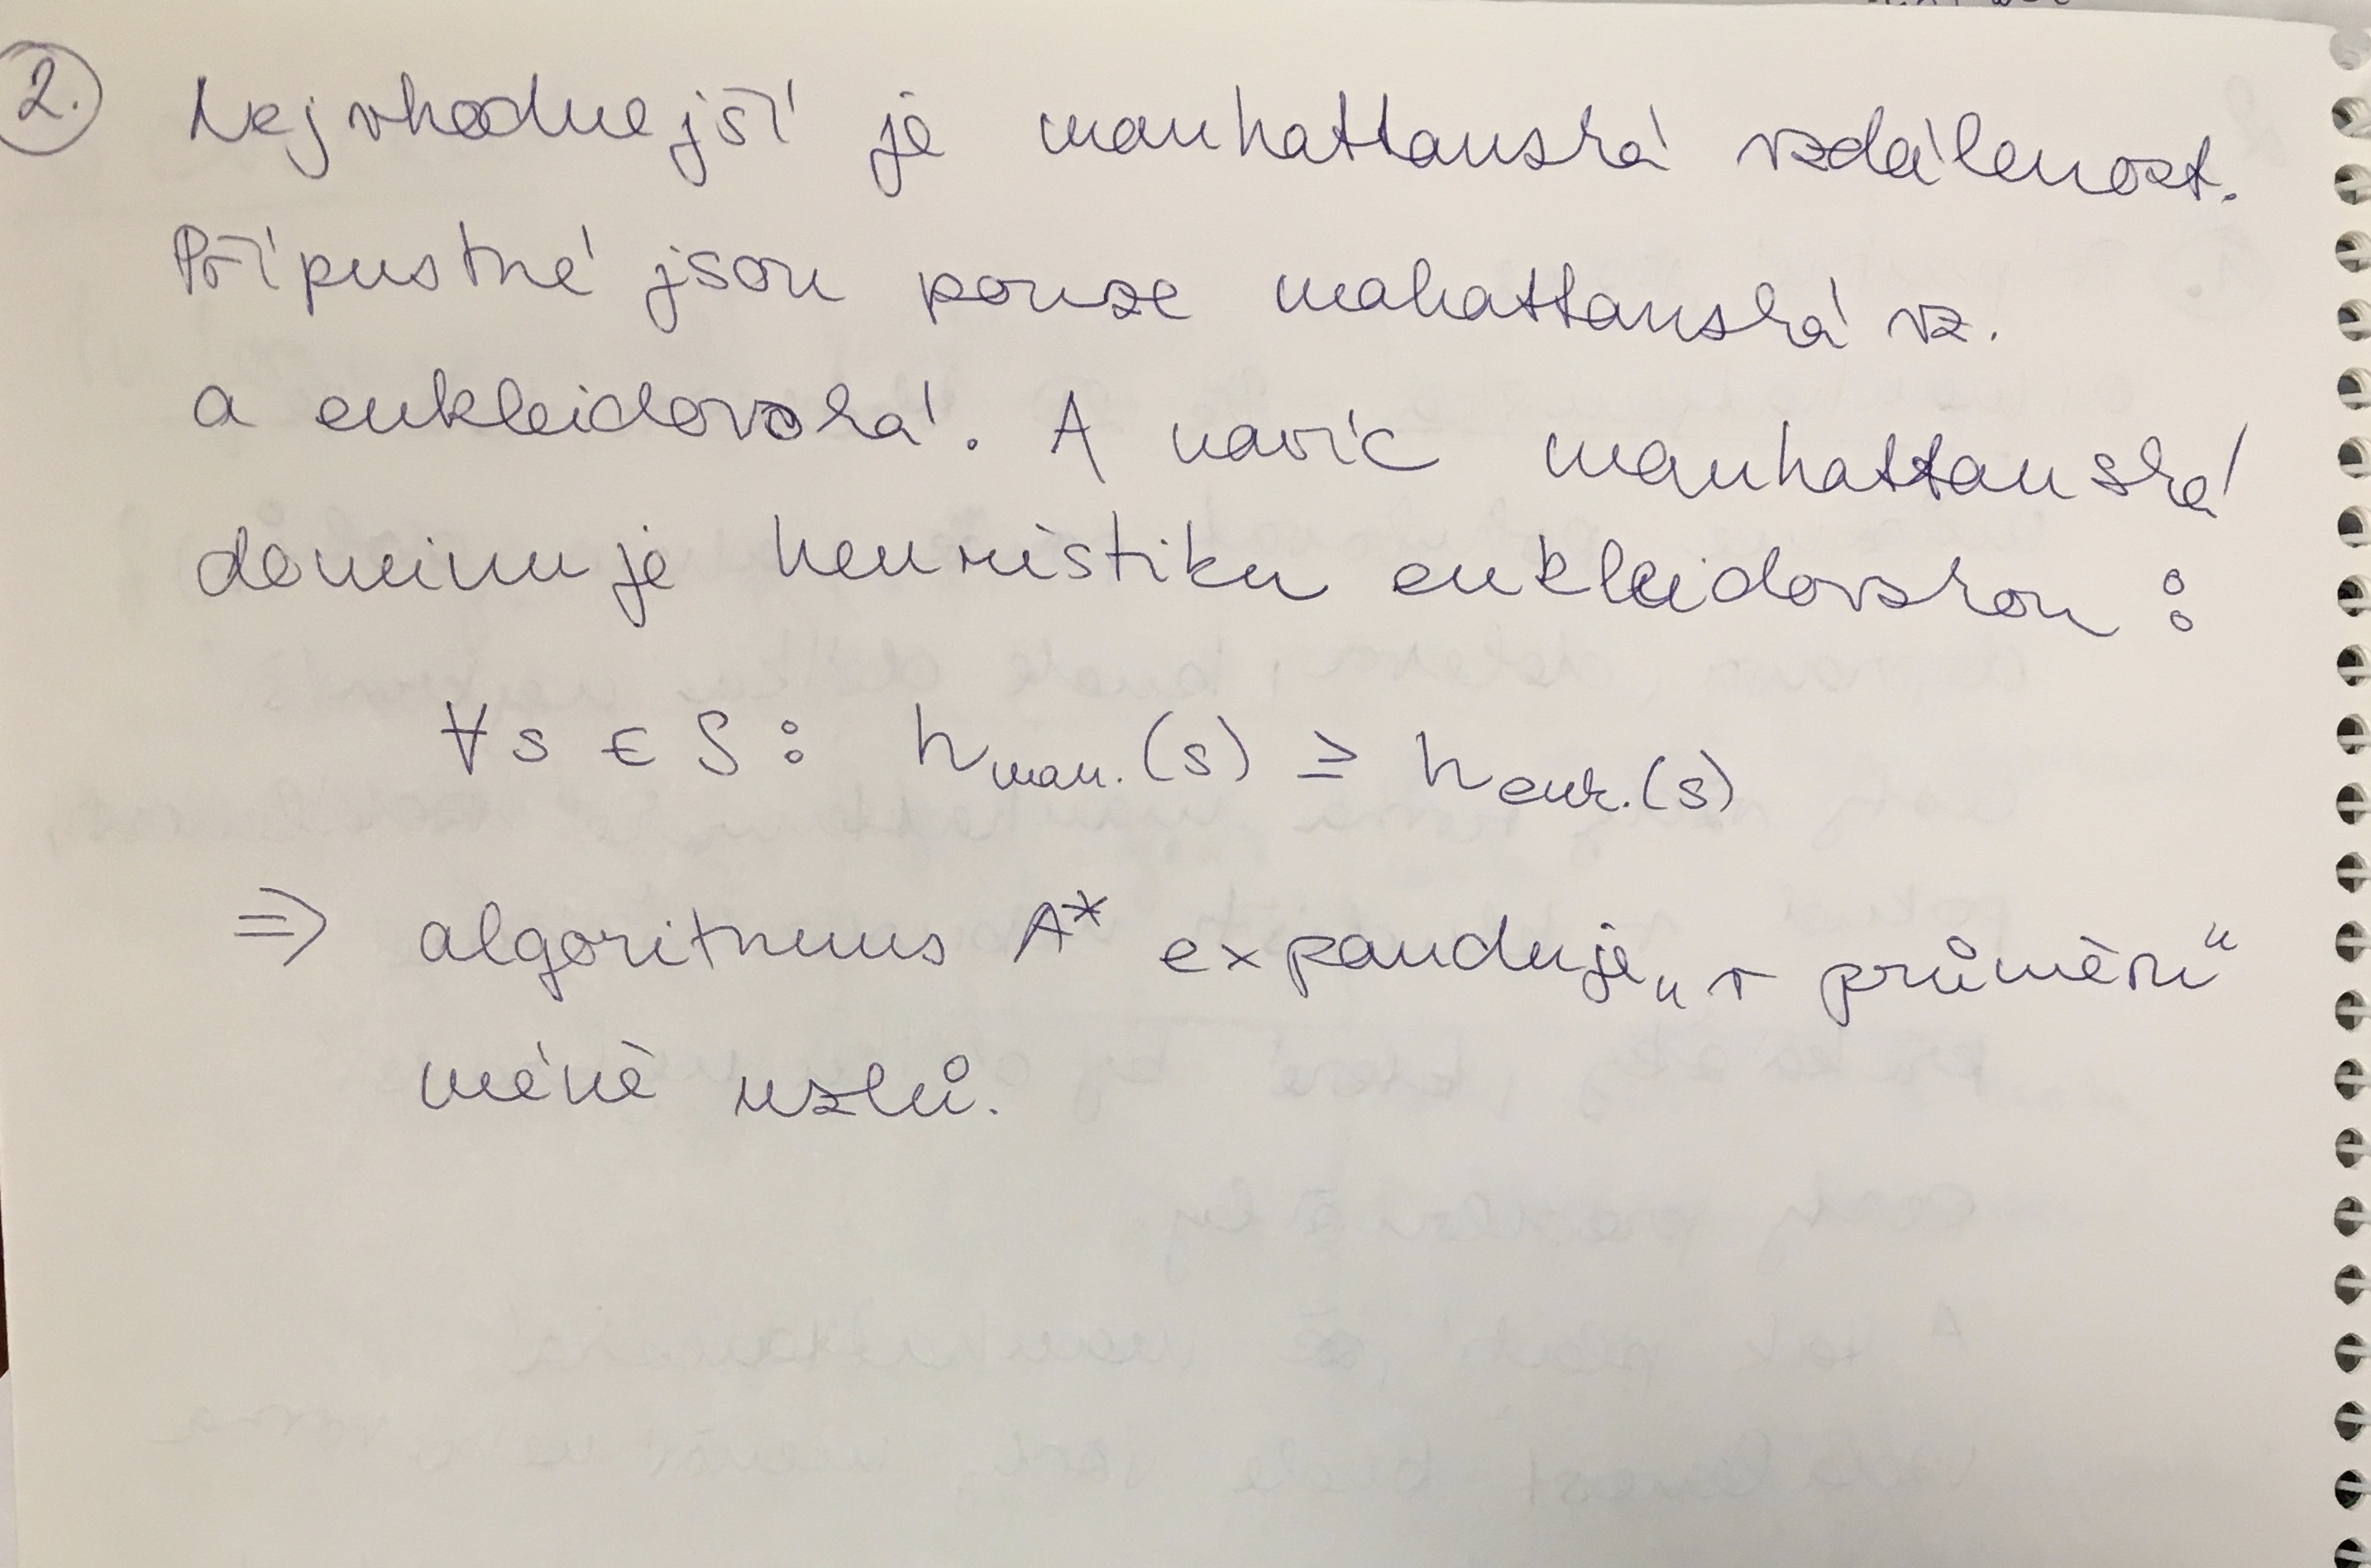 2. Nejvhodnejší je manhattanská vzdálenost.
Přípustné jsou pouze mahattanská vz.
a eukleidovská. A navíc manhattanská
dominuje heuristiku eukleidovskou :
∀s ∈ S : h man. (s) ≥ h euk. (s)
⇒ algoritmus A* expanduje „v průměru“
méně uzlů.